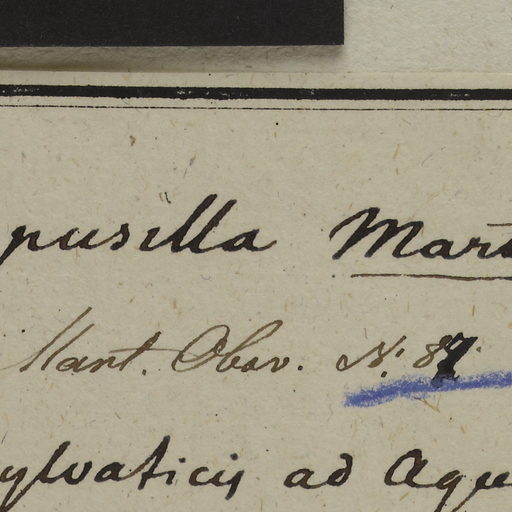 pusilla Mart
Mart. Obsv. N: 87.
ylvaticis ad Aqu